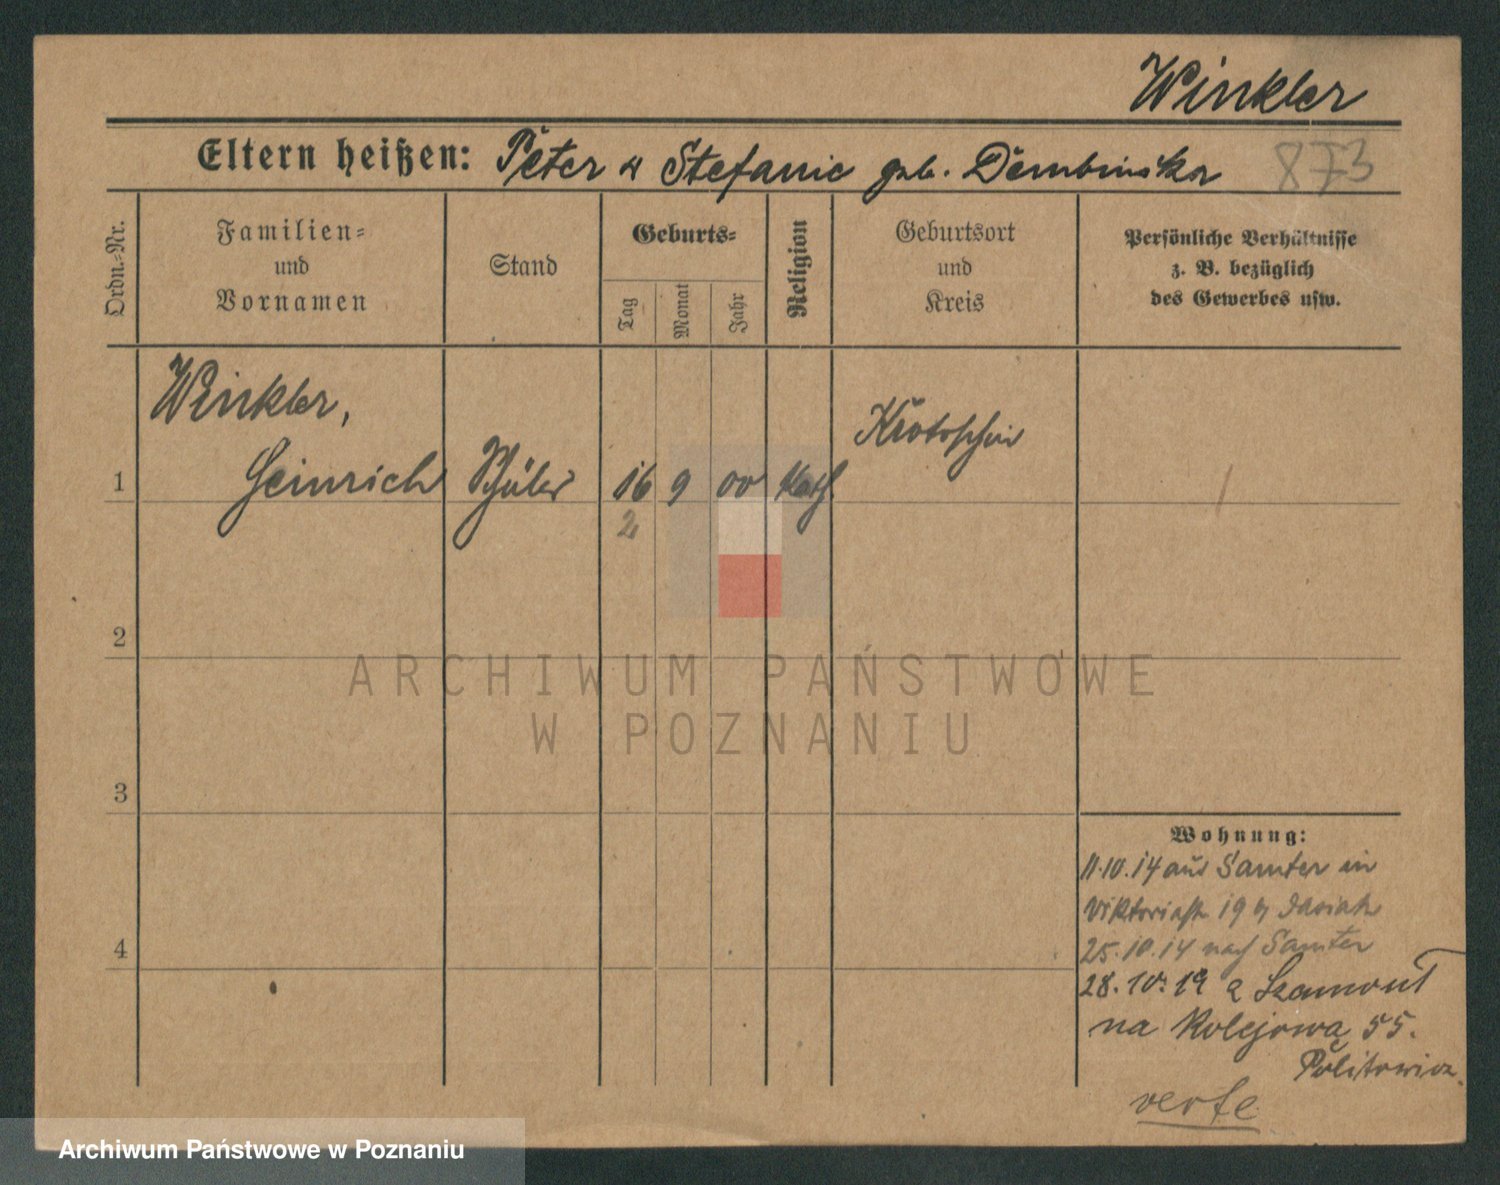 Winkler
Eltern heißen: Peter u Stefanie geb. Dembinska 873
Ordn.-Nr.
Familien-
und
Vornamen
Stand
Geburts-
Tag
Monat
Jahr
Religion
Geburtsort
und
Kreis
Persönliche Verhältnisse
z. B. bezüglich
des Gewerbes usw.
Winkler,
Krotoschin
1 Heinrich Schüler 16 9 00 kath.
2
2
3
4
ARCHIWUM PAŃSTWOWE
W POZNANIU
Wohnung:
11.10.14 aus Samter in
Viktoriastr 19 b/
25.10.14 nach Samter
28.10.19 z Szamout
na Kolejową 55.
Politowicz.
verte
Archiwum Państwowe w Poznaniu